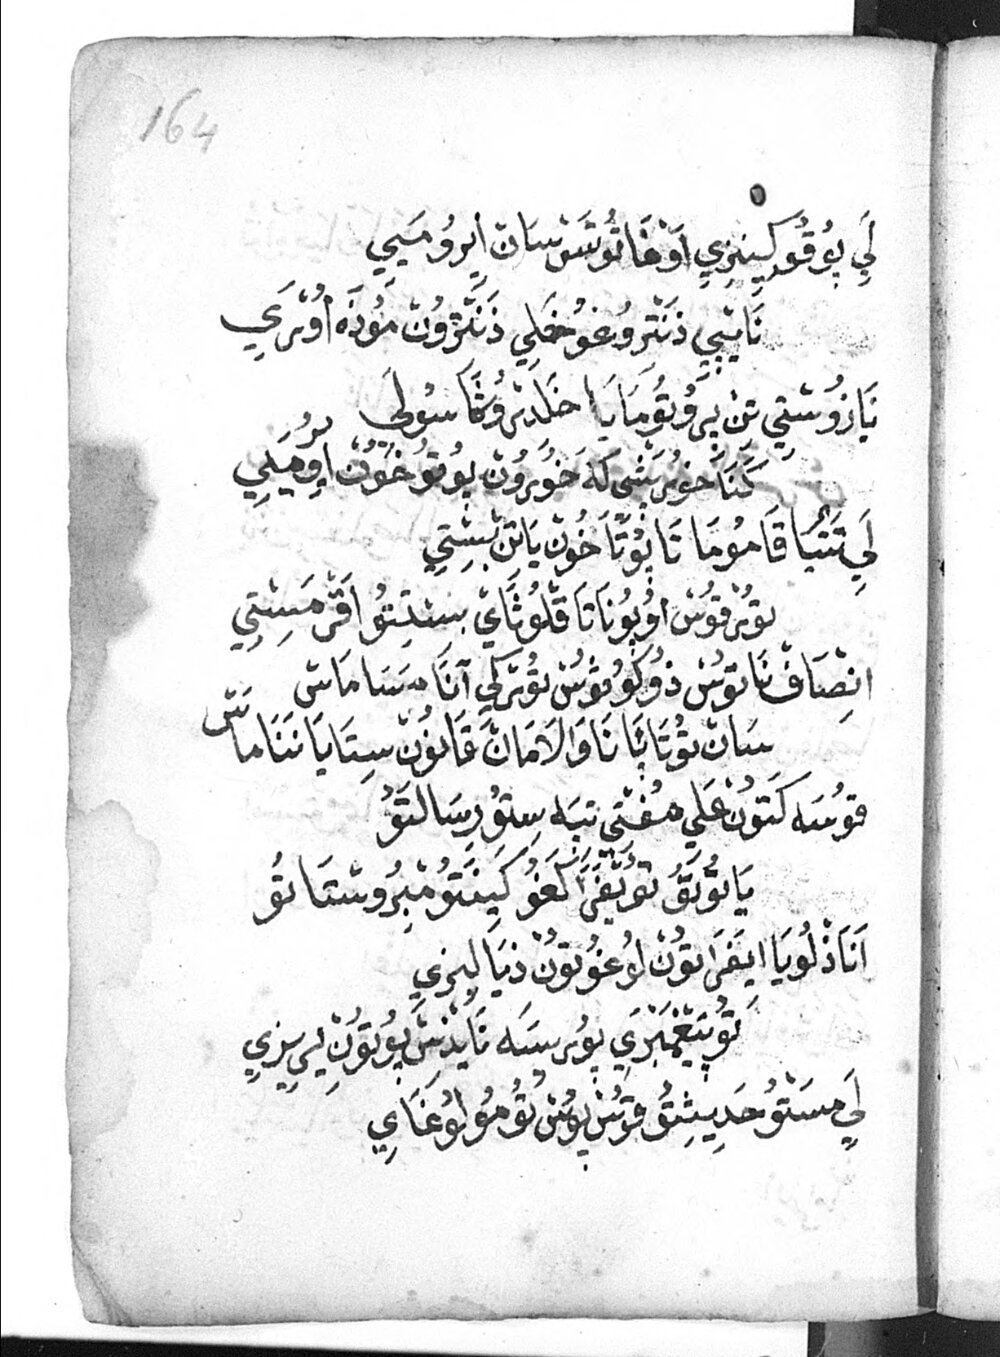 164
لَيِ پُوقُو كِينِرِي اَوْخَاتُوسَسْ سَانْ اِيرُومَيِي
نَايْپِي ذَنْتَرُوغُو خَلِي ذَنْتَرُونْ مُوذَه اُوتْرَيِي
نَازُوسْتِي تِنْ پِرُوتُومَايَا خَلَذِرُوثَا سُولَى
كَنَا خُورَشَى كَه خُورُونْ پُوتُوخُونْ اَوُرُمَيِي
لَيِ تَنْبَا قَامُومَا تَاپُوتَاخُونْ يَاتِنْ پِسْتِي
تُورْقُوسْ اوُپُونَاتَا قَلُوثَايْ سِنْتِتُو اَقْرَمَسِتِي
اِنْصَافْ نَاتُوسْ ذُوكُوتُوسْ تُورْكِي آنَامَسَامَاسْ
سَانْ تُوتَاپَانَا وَالَامَانْ قَانُونْ سِتَايَانَنَامَاسْ
قوُسَه كَتُونْ عَلِي مُفْتِي تِبَه سِتُو رِسَالَتُو
يَاتُوتَوُ تُوتَفَرَا كَغُو كِيفَتُو مْبِرُوسْتَاتُو
اَنَاذْلُويَا اِيفَرَاتُونْ لُوغُوتُونْ دُنْيَا لِيزِي
تُو پَيْغَمْبَرِي پُورْسَه نَايْذِسْ پُوتُونْ پِيرِيزِي
لَيِ مِسَتُو حَدِيثِتُو قُوسْ پُوسْ تُومُو لُوغَايِ